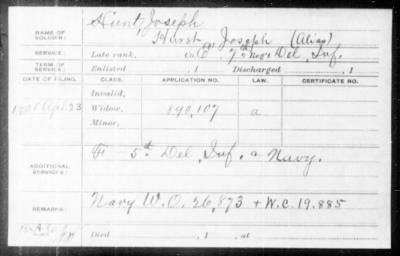 NAME OF SOLDIER: Hunt, Joseph
Hurst, Joseph (Alias)
SERVICE: Late rank, Co. E, 7th Del. Inf.
TERM OF SERVICE: Enlisted , 1 Discharged , 1
DATE OF FILING. CLASS. APPLICATION NO. LAW. CERTIFICATE NO.
Invalid,
Apl. 23 Widow, 890,107 a
Minor,
ADDITIONAL SERVICES: F - 5th Del. Inf. a Navy.
REMARKS: Navy W.O. 26,873 + W.C. 19.885
Died , 1 , at